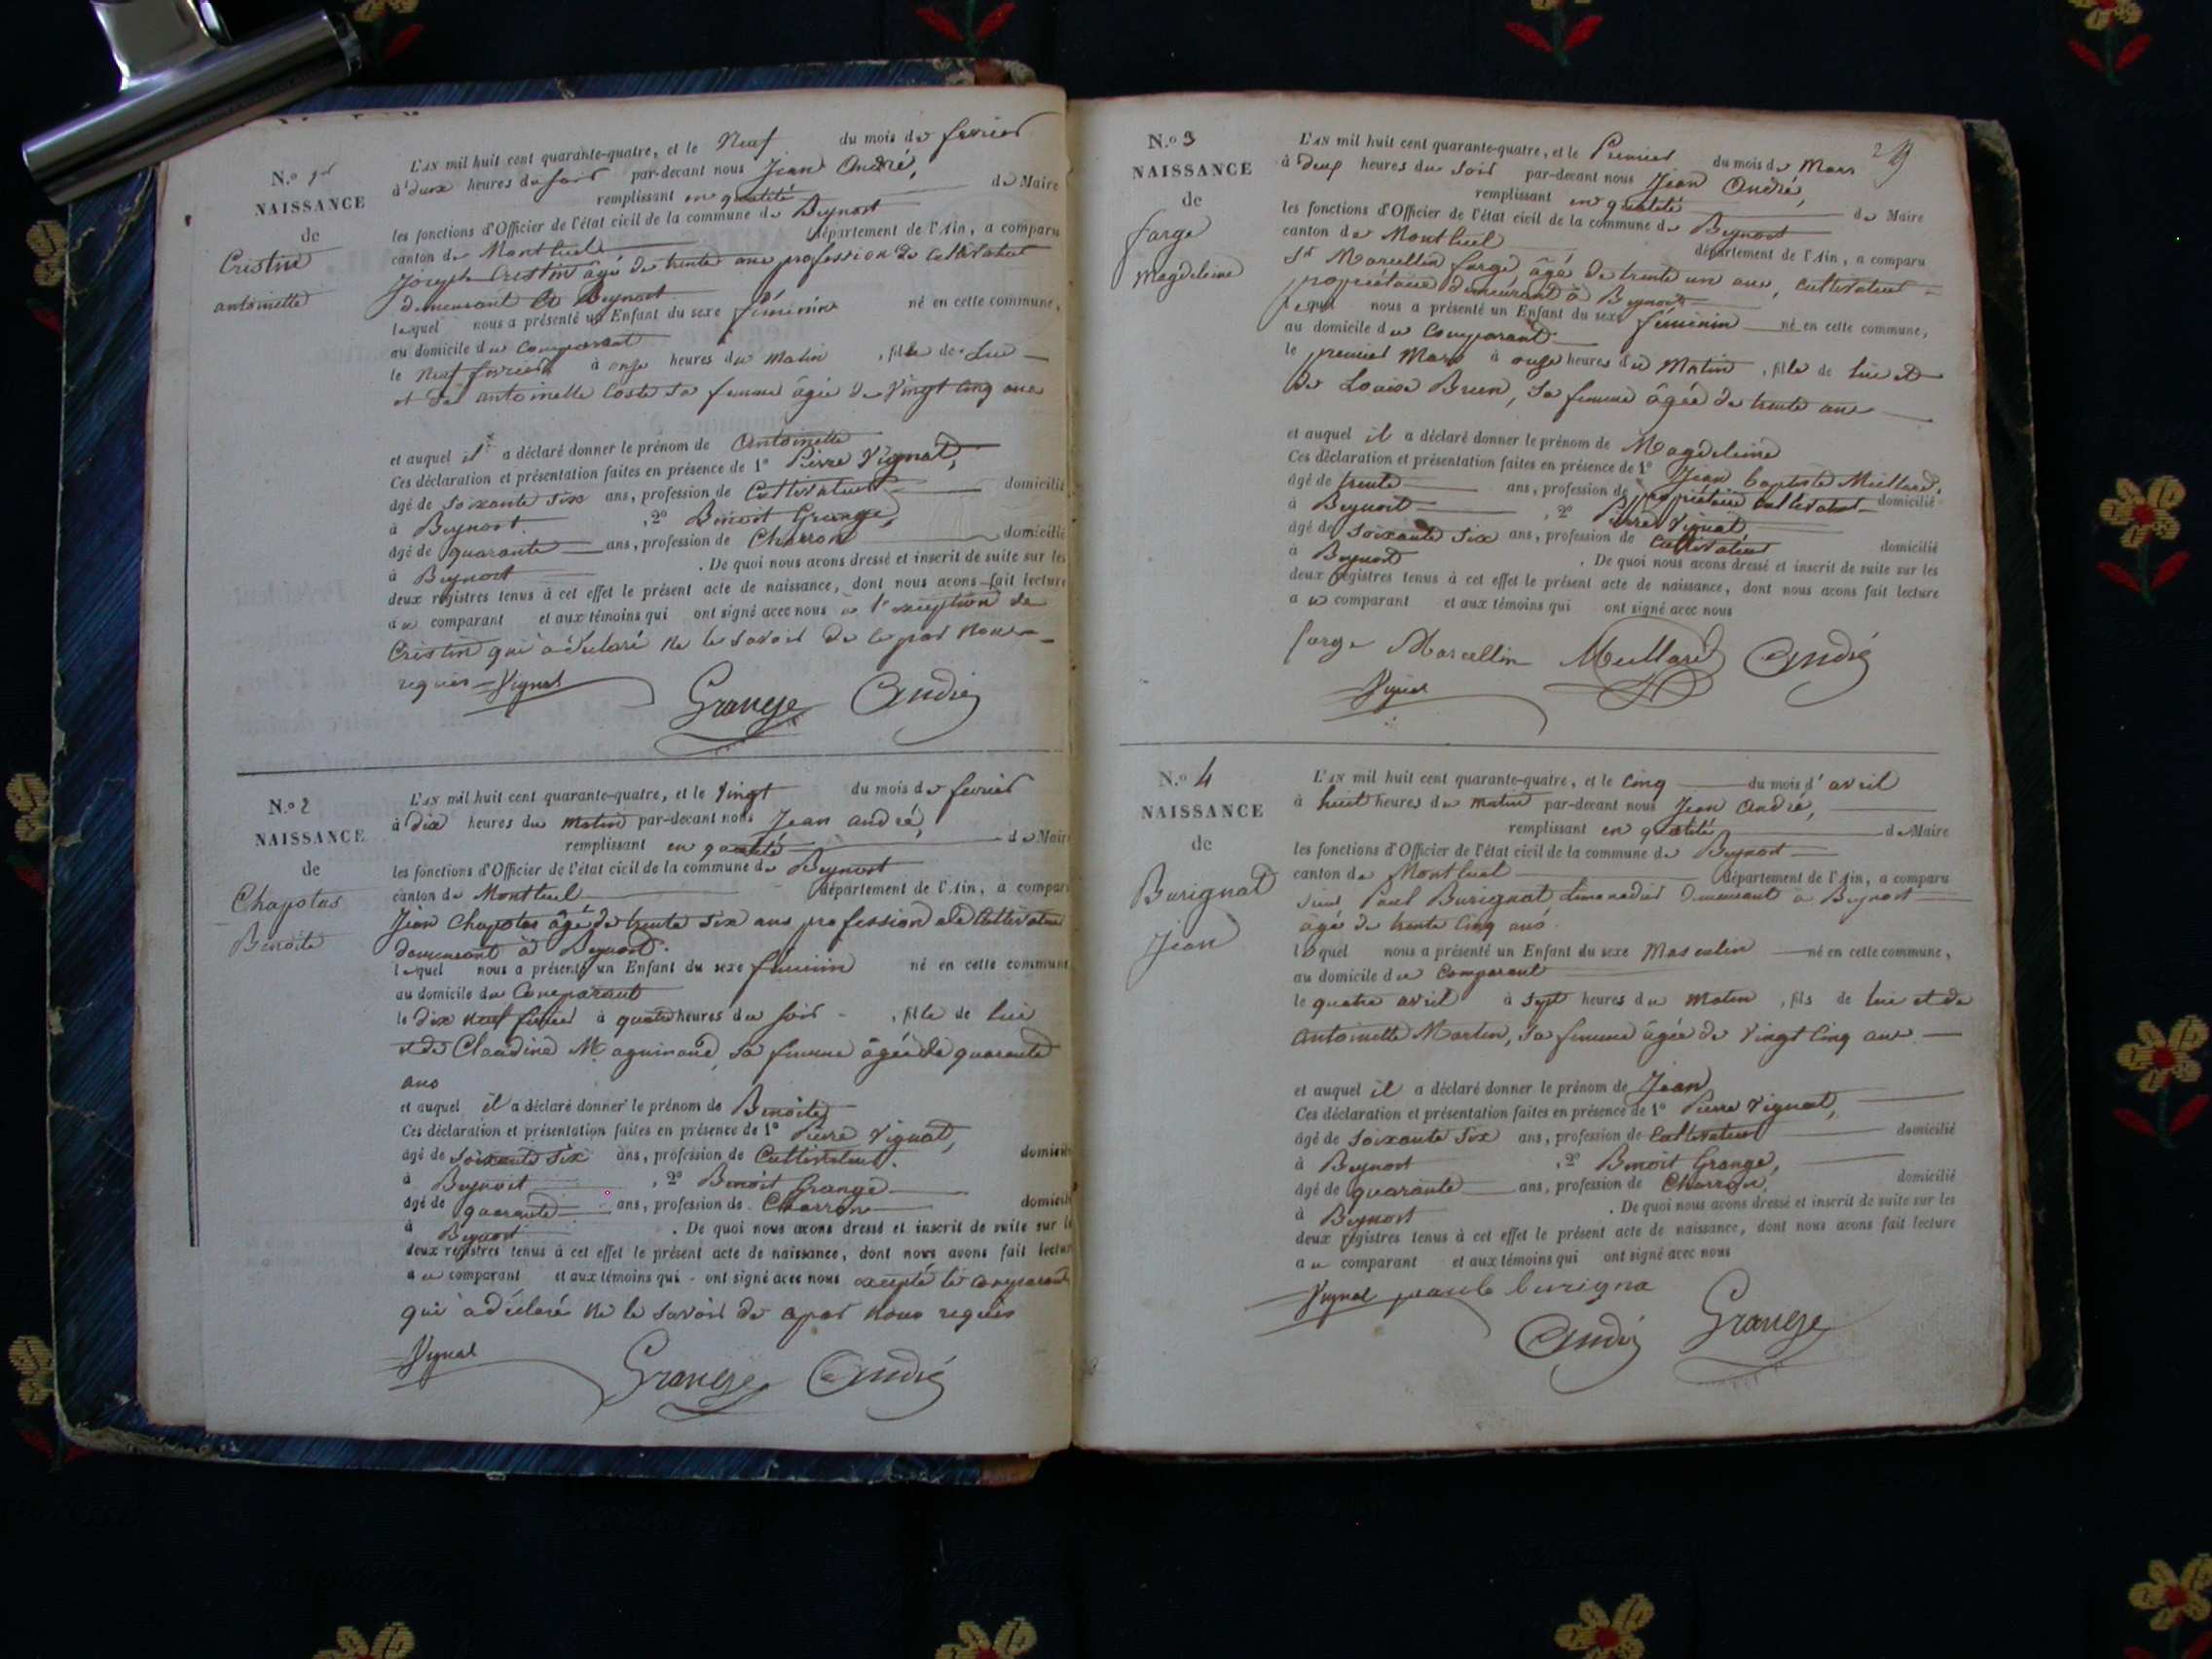 N.o 1er
NAISSANCE
de
Cristin
antoinette
L'AN mil huit cent quarante-quatre, et le Neuf du mois de fevrier
à deux heures du soir par-devant nous Jean André,
remplissant en qualité de Maire
les fonctions d'Officier de l'état civil de la commune de Beynost
canton de Montluel département de l'Ain, a comparu
Joseph Cristin âgé de trente ans profession de Cultivateur
demeurant à Beynost
lequel nous a présenté un Enfant du sexe féminin né en cette commune,
au domicile du Comparant
le Neuf fevrier à onze heures du Matin, fille de Lui
et de antoinette Coste sa femme âgée de Vingt Cinq ans
et auquel il a déclaré donner le prénom de Antoinette
Ces déclaration et présentation faites en présence de 1º Pierre Vignat,
âgé de Soixante Six ans, profession de Cultivateur domicilié
à Beynost, 2º Benoit Grange,
âgé de quarante ans, profession de Charron domicilié
à Beynost. De quoi nous avons dressé et inscrit de suite sur les
deux registres tenus à cet effet le présent acte de naissance, dont nous avons fait lecture
au comparant et aux témoins qui ont signé avec nous à l'exception de
Cristin qui a déclaré ne le savoir de ce par nous
requis Vignat Grange André
N.o 2
NAISSANCE
de
Chapotas
Benoite
L'AN mil huit cent quarante-quatre, et le Vingt du mois de fevrier
à dix heures du matin par-devant nous Jean andré,
remplissant en qualité de Maire
les fonctions d'Officier de l'état civil de la commune de Beynost
canton de Montluel département de l'Ain, a comparu
Jean Chapotas âgé de trente six ans profession de Cultivateur
demeurant à Beynost.
lequel nous a présenté un Enfant du sexe féminin né en cette commune
au domicile du Comparant
le dix neuf fevrier à quatre heures du soir, fille de lui
et de Claudine, sa femme âgée de quarante
ans
et auquel il a déclaré donner le prénom de Benoite
Ces déclaration et présentation faites en présence de 1º Pierre Vignat,
âgé de Soixante Six ans, profession de Cultivateur. domicilié
à Beynost, 2º Benoit Grange
âgé de quarante ans, profession de Charron domicilié
à Beynost. De quoi nous avons dressé et inscrit de suite sur les
deux registres tenus à cet effet le présent acte de naissance, dont nous avons fait lecture
au comparant et aux témoins qui ont signé avec nous excepté le comparant
qui a déclaré ne le savoir de ce par nous requis
Vignat Grange André
N.o 3
NAISSANCE
de
farge
Magdeleine
L'AN mil huit cent quarante-quatre, et le Premier du mois de Mars
à deux heures du soir par-devant nous Jean André,
remplissant en qualité de Maire
les fonctions d'Officier de l'état civil de la commune de Beynost
canton de Montluel département de l'Ain, a comparu
Sr Marcellin farge, âgé de trente un ans, cultivateur
propriétaire demeurant à Beynost
lequel nous a présenté un Enfant du sexe féminin né en cette commune,
au domicile du Comparant
le premier Mars à onze heures du Matin, fille de lui et
de Louise Brun, sa femme âgée de trente ans
et auquel il a déclaré donner le prénom de Magdeleine
Ces déclaration et présentation faites en présence de 1º Jean baptiste
âgé de trente ans, profession de propriétaire cultivateur domicilié
à Beynost, 2º Pierre Vignat
âgé de soixante six ans, profession de Cultivateur domicilié
à Beynost. De quoi nous avons dressé et inscrit de suite sur les
deux registres tenus à cet effet le présent acte de naissance, dont nous avons fait lecture
au comparant et aux témoins qui ont signé avec nous
farge Marcellin André
Vignat
N.o 4
NAISSANCE
de
Burignat
Jean
L'AN mil huit cent quarante-quatre, et le Cinq du mois d'avril
à huit heures du matin par-devant nous Jean André,
remplissant en qualité de Maire
les fonctions d'Officier de l'état civil de la commune de Beynost
canton de Montluel département de l'Ain, a comparu
sieur Paul Burignat Limonadier demeurant à Beynost
âgé de trente Cinq ans.
lequel nous a présenté un Enfant du sexe Masculin né en cette commune,
au domicile du Comparant
le quatre avril à sept heures du matin, fils de lui et de
Antoinette Martin, sa femme âgée de Vingt Cinq ans
et auquel il a déclaré donner le prénom de Jean
Ces déclaration et présentation faites en présence de 1º Pierre Vignat,
âgé de Soixante Six ans, profession de Cultivateur domicilié
à Beynost, 2º Benoit Grange,
âgé de quarante ans, profession de Charron, domicilié
à Beynost. De quoi nous avons dressé et inscrit de suite sur les
deux registres tenus à cet effet le présent acte de naissance, dont nous avons fait lecture
au comparant et aux témoins qui ont signé avec nous
Vignat paule burigna
André Grange